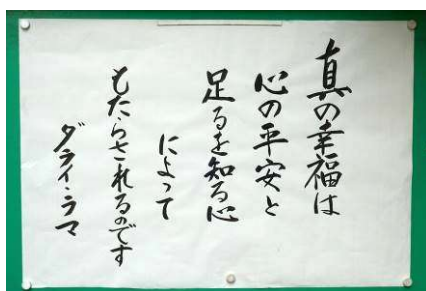 真の幸福は
心の平安と
足るを知る心
によって
もたらされるのです
ダライ・ラマ